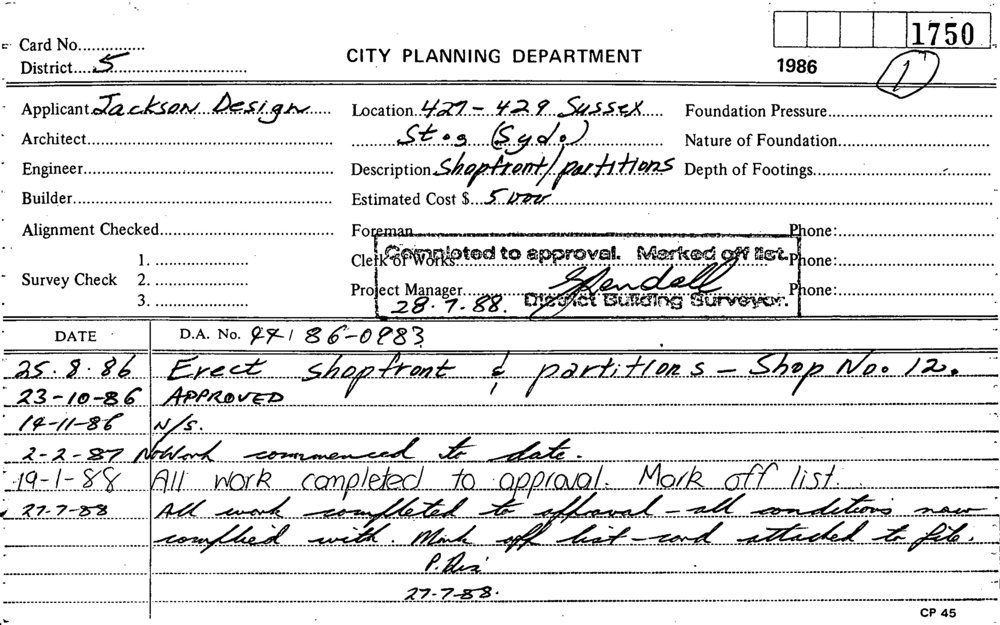 Card No............... CITY PLANNING DEPARTMENT 1750
District....5 1986 1
Applicant Jackson Design Location 427-429 Sussex Foundation Pressure
Architect St., (Syd.) Nature of Foundation
Engineer Description Shopfront/partitions Depth of Footings
Builder Estimated Cost $ 5,000
Alignment Checked Foreman Phone:
Completed to approval. Marked off list.
Clerk of Works Phone:
Survey Check 1.
2.
3.
Project Manager Phone:
28.7.88. District Building Surveyor.
DATE D.A. No. 44/86-0983
25.8.86 Erect shopfront & partitions - Shop No. 12.
23-10-86 APPROVED
14-11-86 N/S.
2-2-87 No Work commenced to date.
19-1-88 All work completed to approval. Mark off list.
27-7-88 All work completed to approval - all conditions now
complied with. Mark off list - card attached to file.
27-7-88.
CP 45